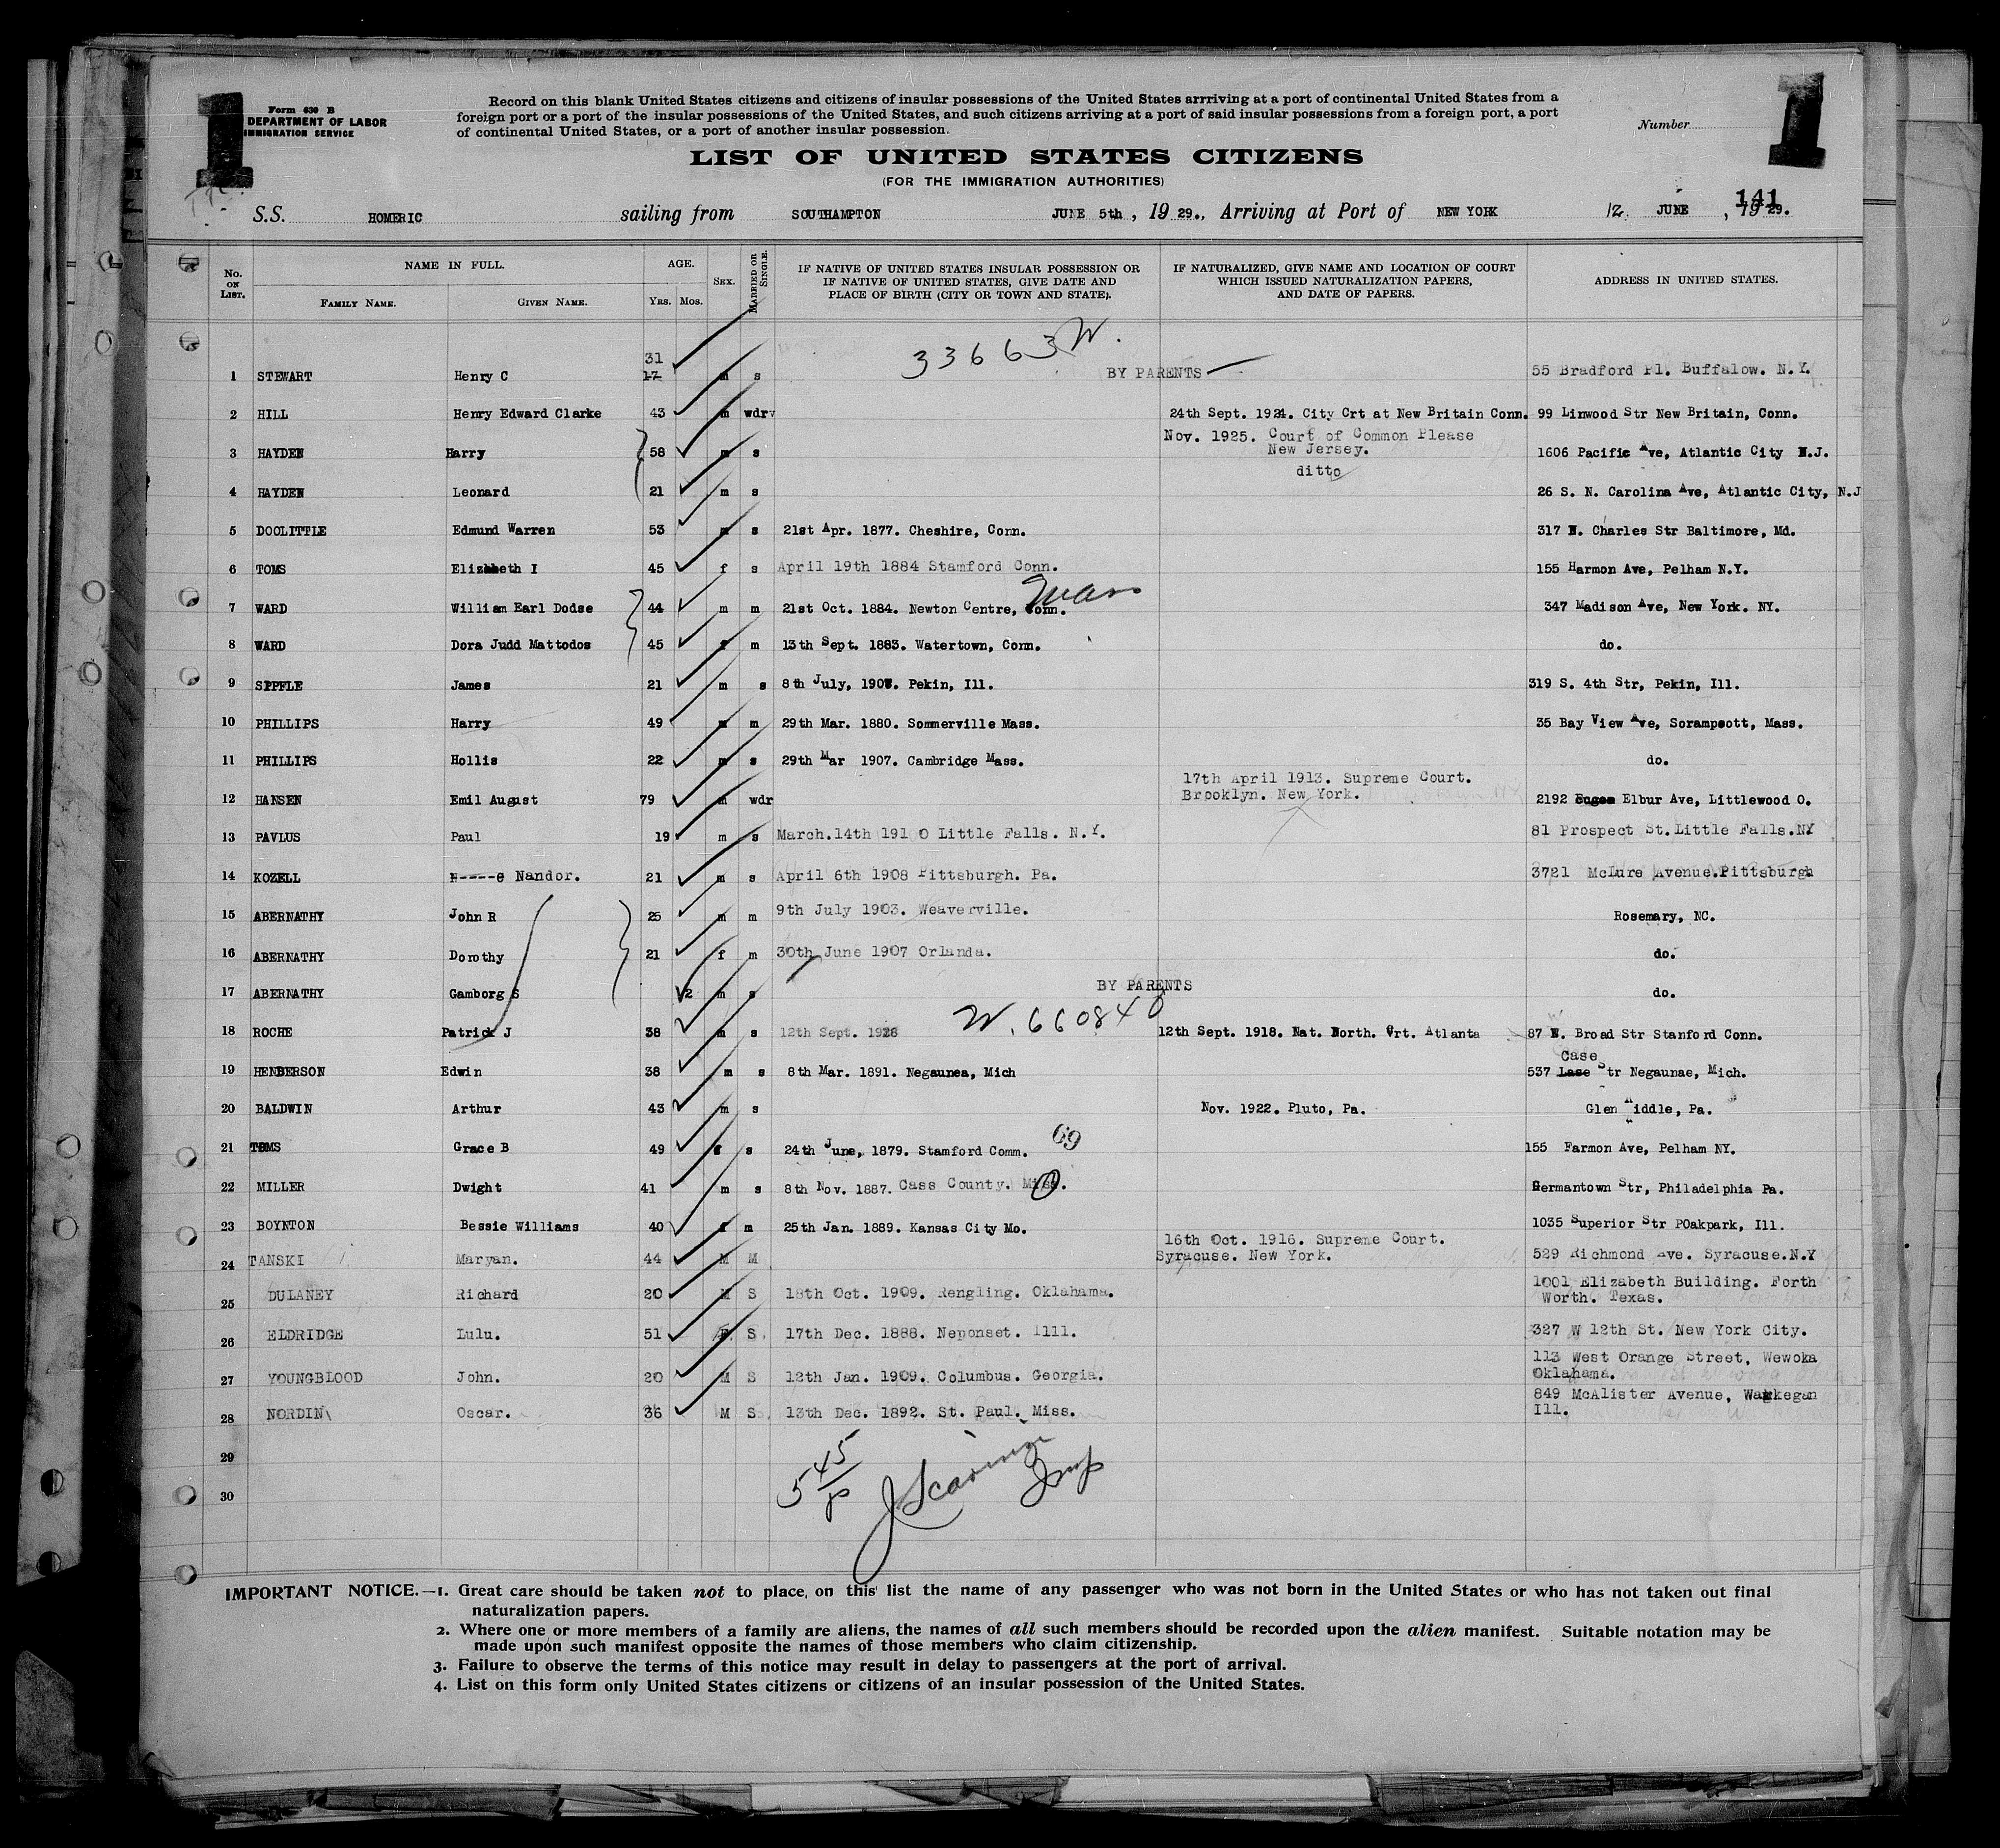 1
Form 630 B
DEPARTMENT OF LABOR
IMMIGRATION SERVICE
Record on this blank United States citizens and citizens of insular possessions of the United States arrriving at a port of continental United States from a
foreign port or a port of the insular possessions of the United States, and such citizens arriving at a port of said insular possessions from a foreign port, a port
of continental United States, or a port of another insular possession.
Number
1
LIST OF UNITED STATES CITIZENS
(FOR THE IMMIGRATION AUTHORITIES)
141
S.S. HOMERIC sailing from SOUTHAMPTON JUNE 5th, 19 29., Arriving at Port of NEW YORK 12. JUNE, 1929.
No. ON LIST. NAME IN FULL. AGE. SEX. MARRIED OR SINGLE. IF NATIVE OF UNITED STATES INSULAR POSSESSION OR IF NATIVE OF UNITED STATES, GIVE DATE AND PLACE OF BIRTH (CITY OR TOWN AND STATE). IF NATURALIZED, GIVE NAME AND LOCATION OF COURT WHICH ISSUED NATURALIZATION PAPERS, AND DATE OF PAPERS. ADDRESS IN UNITED STATES.
FAMILY NAME. GIVEN NAME. YRS. MOS.
33663 W.
31
1 STEWART Henry C 17 m s BY PARENTS 55 Bradford Pl. Buffalow. N.Y.
2 HILL Henry Edward Clarke 43 m wdr 24th Sept. 1924. City Crt at New Britain Conn. 99 Linwood Str New Britain, Conn.
Nov. 1925. Court of Common Please
3 HAYDEN Harry 58 m s New Jersey. 1606 Pacific Ave, Atlantic City N.J.
ditto
4 HAYDEN Leonard 21 m s 26 S. N. Carolina Ave, Atlantic City, N.J
5 DOOLITTLE Edmund Warren 53 m s 21st Apr. 1877. Cheshire, Conn. 317 N. Charles Str Baltimore, Md.
6 TOMS Elizabeth I 45 f s April 19th 1884 Stamford Conn. 155 Harmon Ave, Pelham N.Y.
7 WARD William Earl Dodse 44 m m 21st Oct. 1884. Newton Centre, Conn. 347 Madison Ave, New York. NY.
8 WARD Dora Judd Mattodos 45 f m 13th Sept. 1883. Watertown, Conn. do.
9 SIPFLE James 21 m s 8th July, 1907. Pekin, Ill. 319 S. 4th Str, Pekin, Ill.
10 PHILLIPS Harry 49 m m 29th Mar. 1880. Sommerville Mass. 35 Bay View Ave, Sorampsott, Mass.
11 PHILLIPS Hollis 22 m s 29th Mar 1907. Cambridge Mass. do.
17th April 1913. Supreme Court.
12 HANSEN Emil August 79 m wdr Brooklyn. New York. 2192 Elbur Ave, Littlewood O.
13 PAVLUS Paul 19 m s March.14th 1910 Little Falls. N.Y. 81 Prospect St.Little Falls.NY
14 KOZELL Nandor. 21 m s April 6th 1908 Pittsburgh. Pa. 3721 McLure Avenue.Pittsburgh
15 ABERNATHY John R 25 m m 9th July 1903. Weaverville. Rosemary, NC.
16 ABERNATHY Dorothy 21 f m 30th June 1907 Orlanda. do.
17 ABERNATHY Gamborg S 2 m s BY PARENTS do.
W. 660840
18 ROCHE Patrick J 38 m s 12th Sept. 1928 12th Sept. 1918. Nat. North. Crt. Atlanta 87 W. Broad Str Stanford Conn.
Case
19 HENDERSON Edwin 38 m s 8th Mar. 1891. Negaunea, Mich 537 Lase Str Negaunae, Mich.
20 BALDWIN Arthur 43 m s Nov. 1922. Pluto, Pa. Glen Middle, Pa.
69
21 TOMS Grace B 49 f s 24th June, 1879. Stamford Comm. 155 Farmon Ave, Pelham NY.
22 MILLER Dwight 41 m s 8th Nov. 1887. Cass County. Germantown Str, Philadelphia Pa.
23 BOYNTON Bessie Williams 40 f m 25th Jan. 1889. Kansas City Mo. 1035 Superior Str POakpark, Ill.
16th Oct. 1916. Supreme Court.
24 TANSKI Maryan. 44 M M Syracuse. New York. 529 Richmond Ave. Syracuse.N.Y
1001 Elizabeth Building. Forth
25 DULANEY Richard 20 M S 18th Oct. 1909. Rengling. Oklahama. Worth. Texas.
26 ELDRIDGE Lulu. 51 F. S. 17th Dec. 1888. Neponset. Illl. 327 W 12th St. New York City.
113 West Orange Street, Wewoka
27 YOUNGBLOOD John. 20 M S 12th Jan. 1909. Columbus. Georgia. Oklahama.
849 McAlister Avenue, Waukegan
28 NORDIN Oscar. 36 M S. 13th Dec. 1892. St. Paul. Miss. Ill.
29
30
5 45/P
Insp
IMPORTANT NOTICE.—1. Great care should be taken not to place, on this list the name of any passenger who was not born in the United States or who has not taken out final
naturalization papers.
2. Where one or more members of a family are aliens, the names of all such members should be recorded upon the alien manifest. Suitable notation may be
made upon such manifest opposite the names of those members who claim citizenship.
3. Failure to observe the terms of this notice may result in delay to passengers at the port of arrival.
4. List on this form only United States citizens or citizens of an insular possession of the United States.